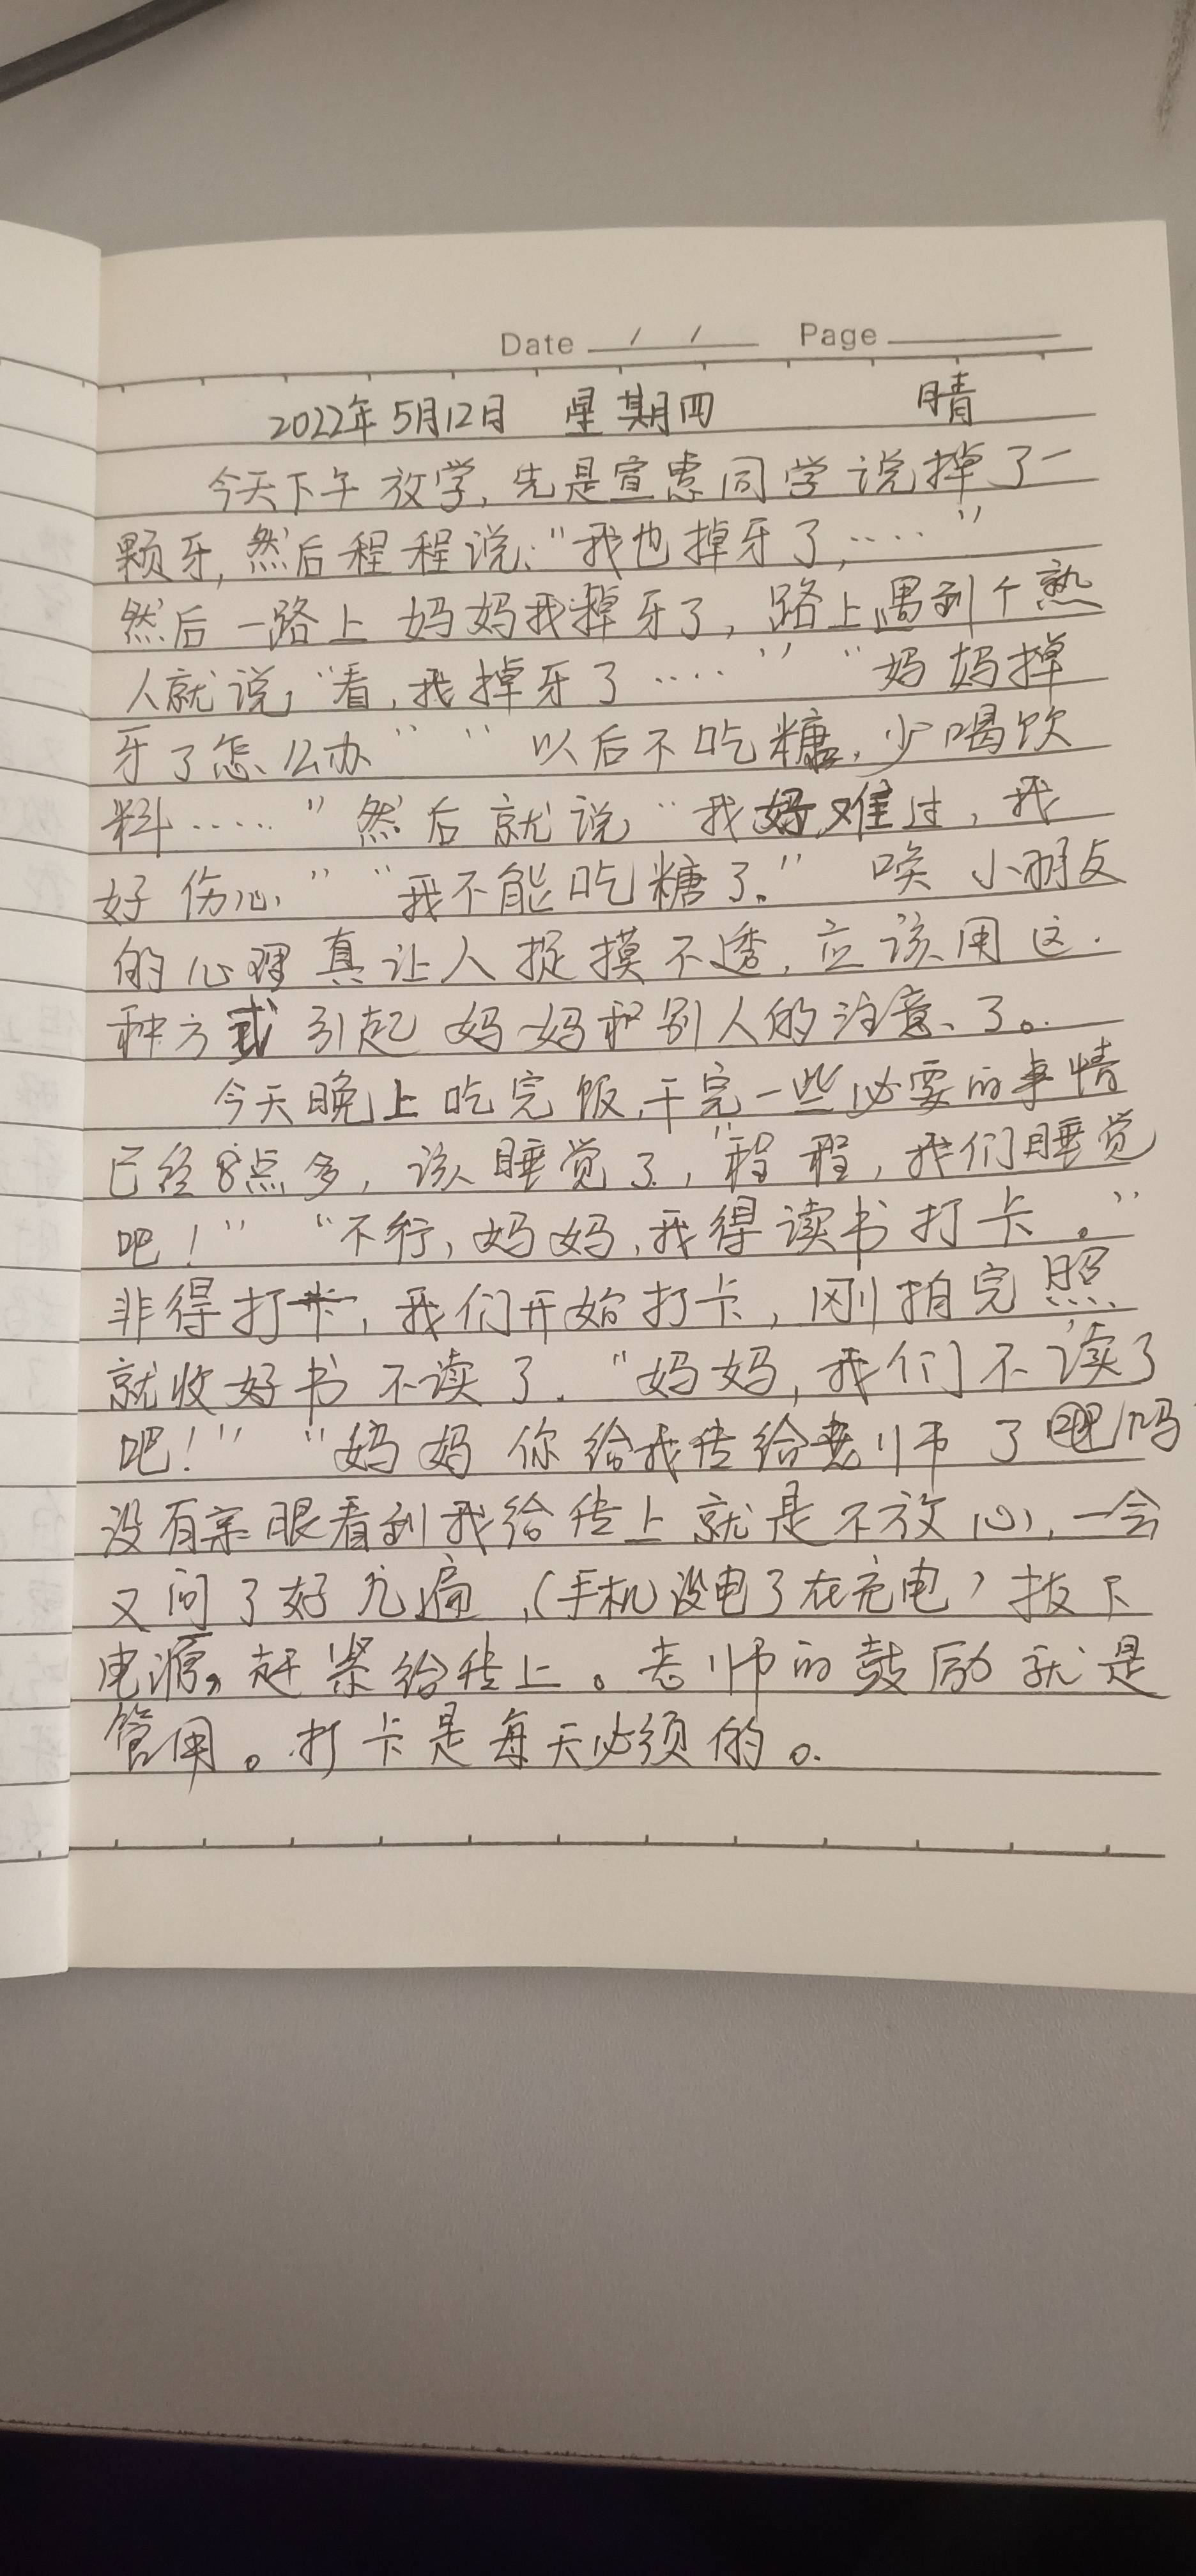 Date / / Page
2022年5月12日 星期四 晴
今天下午放学,先是宣惠同学说掉了一
颗牙,然后程程说:"我也掉牙了,····"
然后一路上妈妈我掉牙了,路上遇到个熟
人就说,"看,我掉牙了····" "妈妈掉
牙了怎么办" "以后不吃糖,少喝饮
料·····"然后就说"我好难过,我
好伤心" "我不能吃糖了。" 唉 小朋友
的心理真让人捉摸不透,应该用这
种方式引起妈妈和别人的注意了。
今天晚上吃完饭,干完一些必要的事情
已经8点多,该睡觉了,"程程,我们睡觉
吧!" "不行,妈妈,我得读书打卡。"
非得打卡,我们开始打卡,刚拍完照
就收好书不读了."妈妈,我们不读了
吧!" "妈妈你给我传给老师了吗
没有亲眼看到我给传上就是不放心,一会
又问了好几遍,(手机没电了在充电)拔下
电源,赶紧给传上。老师的鼓励就是
管用。打卡是每天必须的。